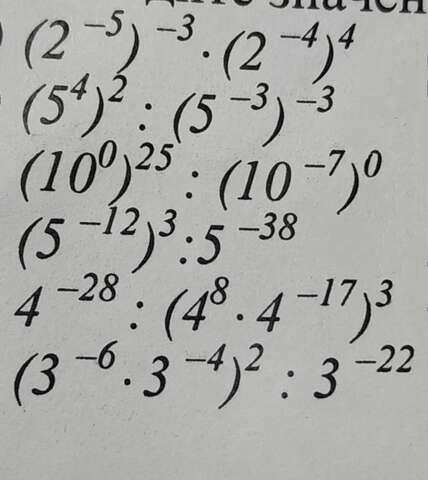 (2⁻⁵)⁻³ · (2⁻⁴)⁴
(5⁴)² : (5⁻³)⁻³
(10⁰)²⁵ : (10⁻⁷)⁰
(5⁻¹²)³ : 5⁻³⁸
4⁻²⁸ : (4⁸ · 4⁻¹⁷)³
(3⁻⁶ · 3⁻⁴)² : 3⁻²²